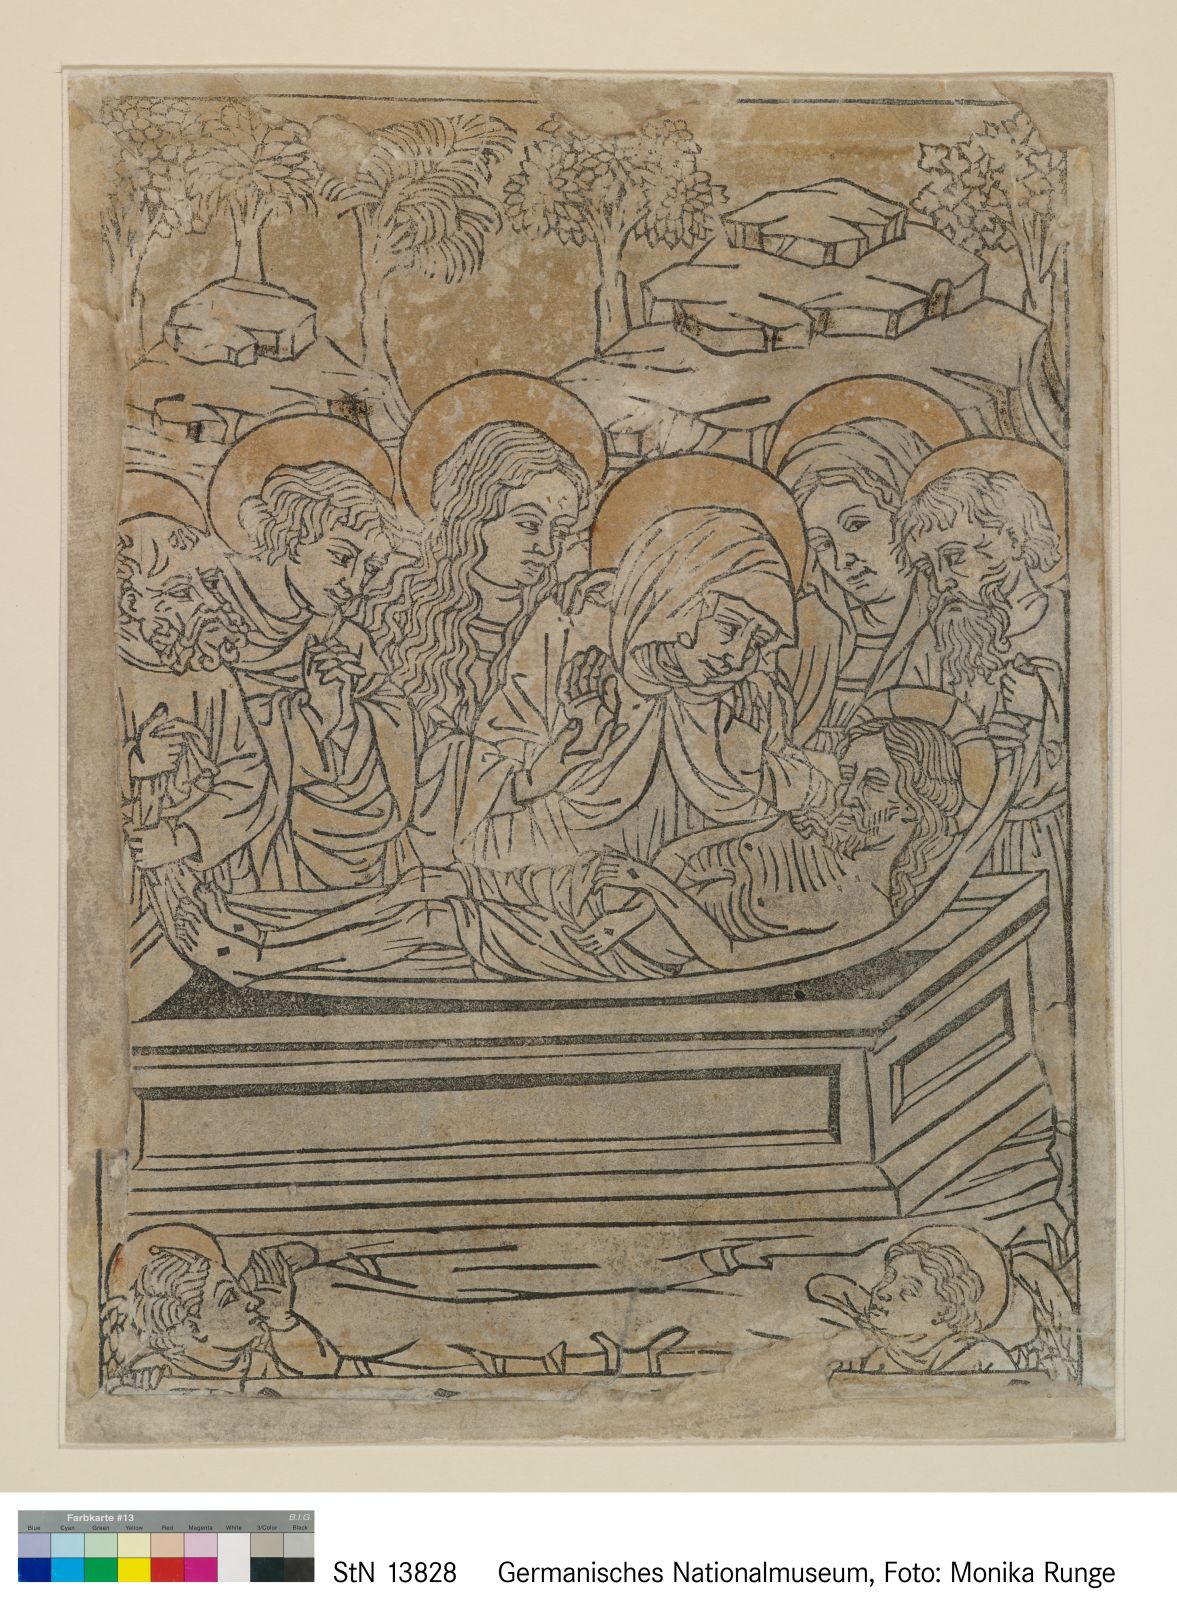 Farbkarte #13
B.I.G.
Blue Cyan Green Yellow Red Magenta White 3/Color Black
StN 13828 Germanisches Nationalmuseum, Foto: Monika Runge